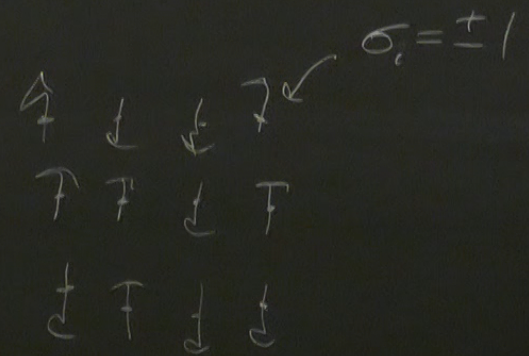 σᵢ = ± 1
↑ ↓ ↓ ↑
↑ ↑ ↓ ↑
↓ ↑ ↓ ↓